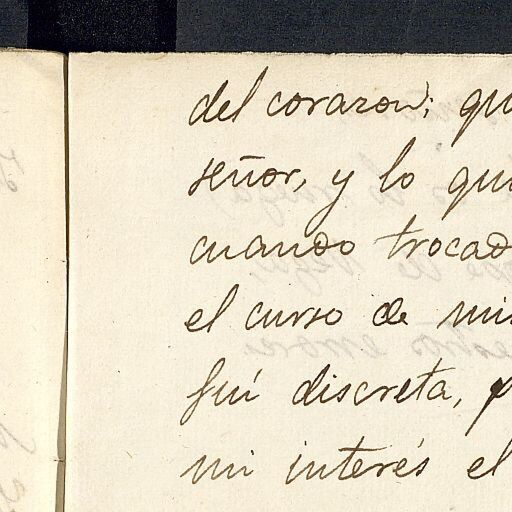 del corazon; qu
señor, y lo qui
cuando trocad
el curso de mis
fuí discreta, p
mi interés el